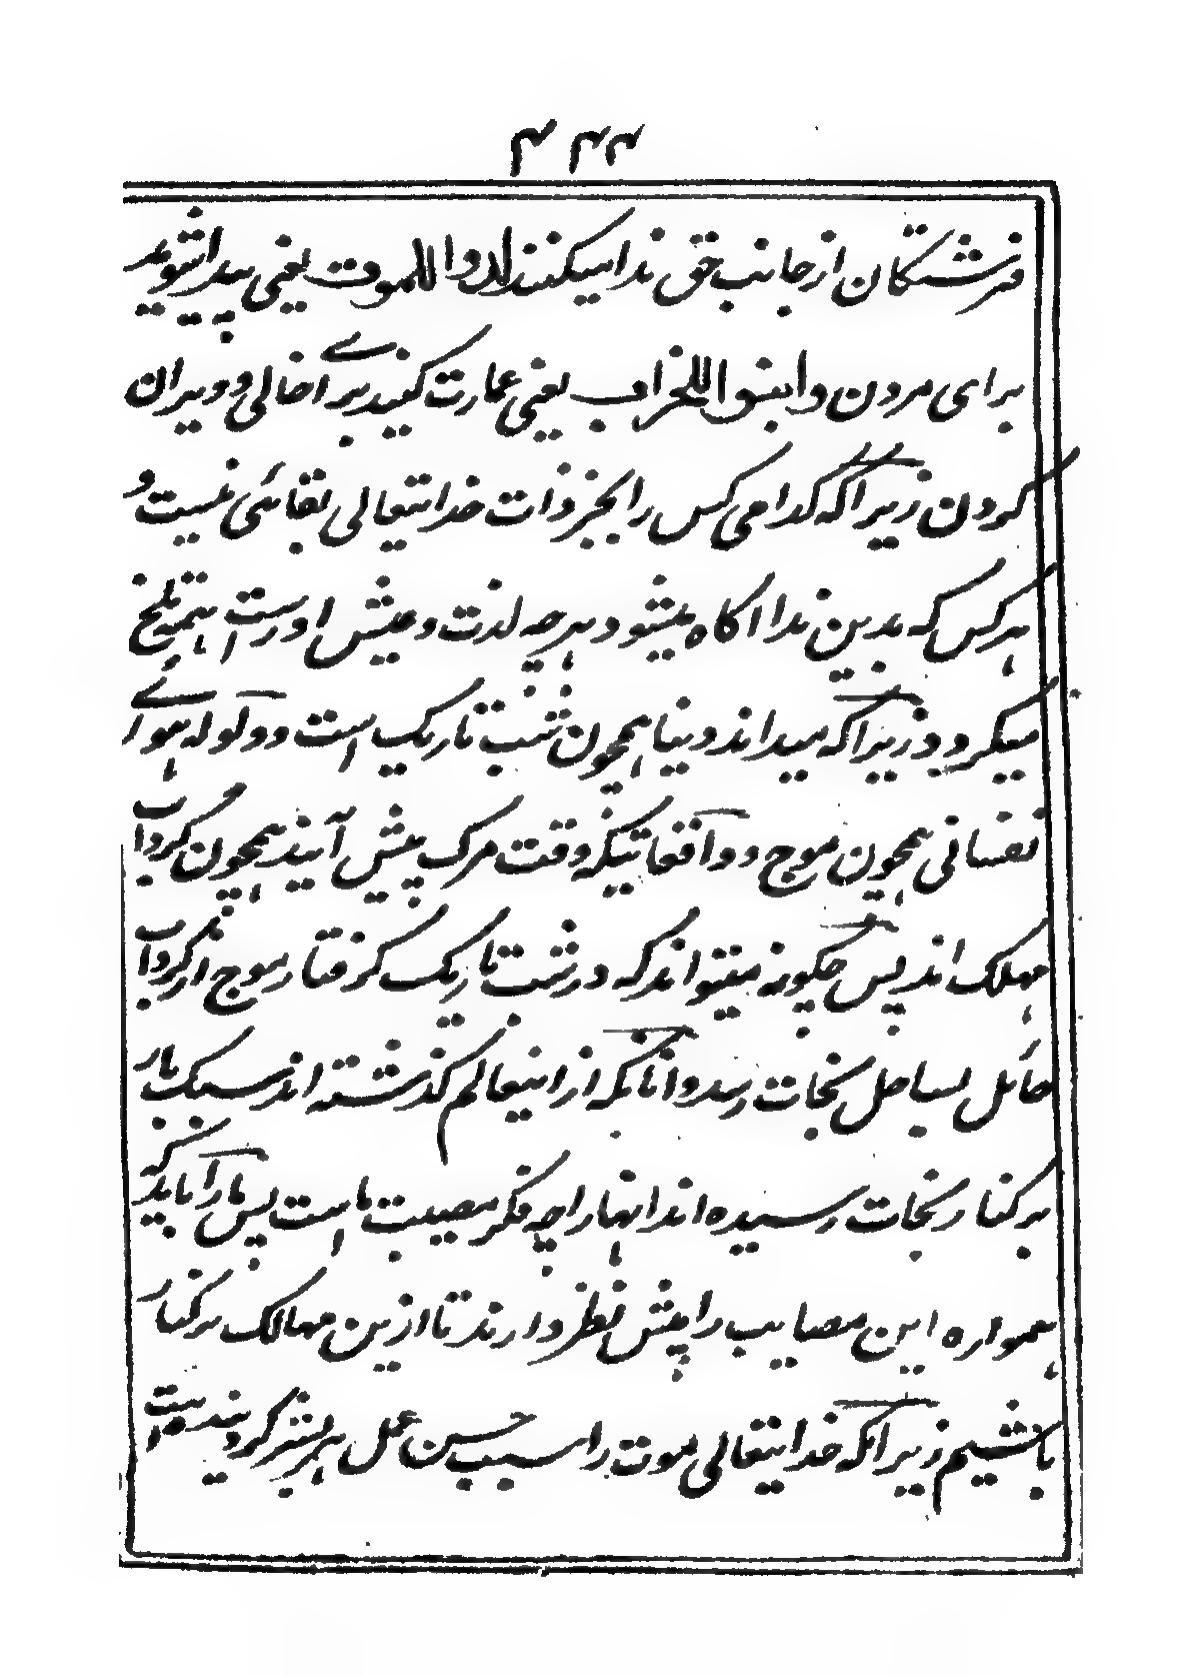 ۲۲۲
فرشتگان از جانب حق ندا میکنند لدوا للموت یعنی پیدا شوید
برای مردن و ابنوا للخراب یعنی عمارت کنید برای خالی و ویران
کردن زیرا که کدامی کس را بجز ذات خدایتعالی بقائی نیست و
هر کس که بدین ندا آگاه میشود هرچه لذت و عیش اوست همه تلخ
میگردد زیرا که میداند دنیا همچون شب تاریک است و ولوله هوای
نفسانی همچون موج و واقعاتیکه وقت مرگ پیش آیند همچون گرداب
مهلک اند پس چگونه میتواند که در شب تاریک گرفتار موج از گرداب
هائل بساحل نجات رسد و آنانکه ازاینعالم گذشته اند سبک بار
بر کنار نجات رسیده اند انها را چه فکر مصیبت ما است پس ما را باید که
همواره این مصایب را پیش نظر دارند تا ازین مهالک بر کنار
باشیم زیرا که خدایتعالی موت را سبب حسن عمل هر بشر گردنیده است